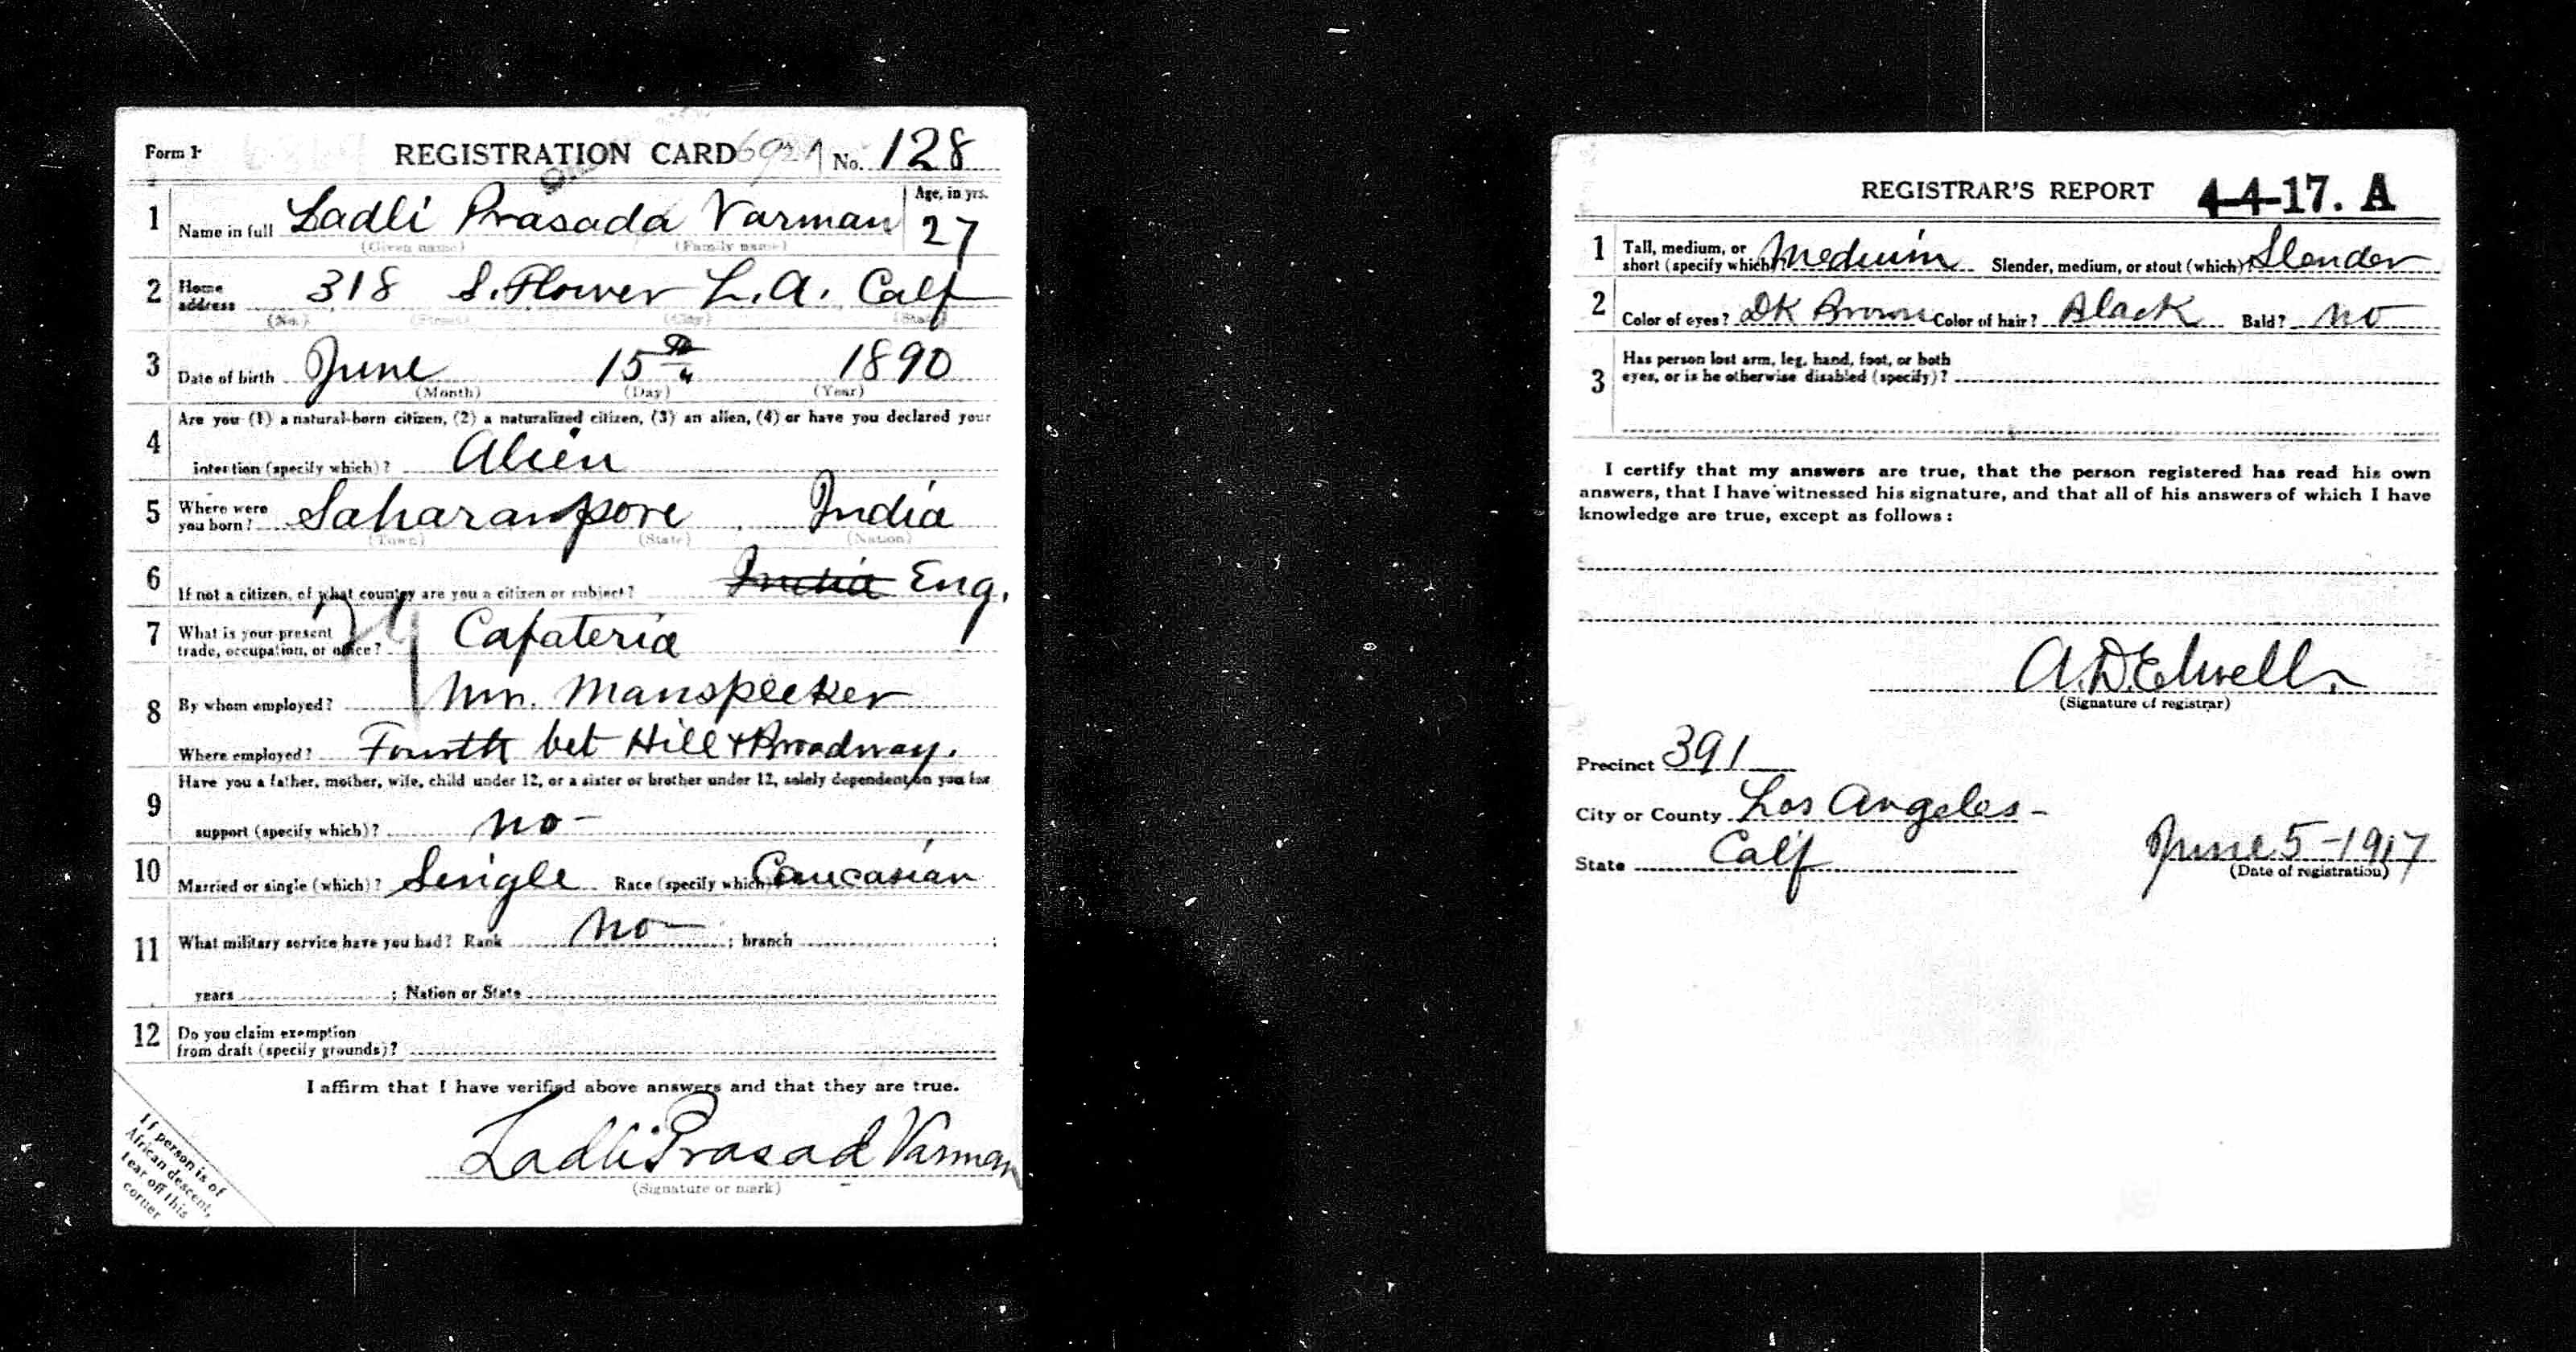 Form 1 REGISTRATION CARD No. 128
1 Name in full Ladli Prasada Varman Age, in yrs. 27
(Given name) (Family name)
2 Home address 318 S. Flower L.A. Calf
(No.) (Street) (City) (State)
3 Date of birth June 15th 1890
(Month) (Day) (Year)
4 Are you (1) a natural-born citizen, (2) a naturalized citizen, (3) an alien, (4) or have you declared your
intention (specify which)? Alien
5 Where were you born? Saharanpore India
(Town) (State) (Nation)
6 If not a citizen, of what country are you a citizen or subject? India Eng.
7 What is your present trade, occupation, or office? Cafateria
8 By whom employed? Mr. Manspeeker
Where employed? Fourth bet Hill & Broadway.
9 Have you a father, mother, wife, child under 12, or a sister or brother under 12, solely dependent on you for
support (specify which)? no -
10 Married or single (which)? Single Race (specify which)? Caucasian
11 What military service have you had? Rank no - ; branch ;
years ; Nation or State
12 Do you claim exemption
from draft (specify grounds)?
I affirm that I have verified above answers and that they are true.
Ladli Prasad Varman
(Signature or mark)
If person is of
African descent,
tear off this
corner
REGISTRAR'S REPORT 4-4-17. A
1 Tall, medium, or
short (specify which)? Medium Slender, medium, or stout (which)? Slender
2 Color of eyes? DK Brown Color of hair? Black Bald? no
3 Has person lost arm, leg, hand, foot, or both
eyes, or is he otherwise disabled (specify)?
I certify that my answers are true, that the person registered has read his own
answers, that I have witnessed his signature, and that all of his answers of which I have
knowledge are true, except as follows:
A.D. Elwell
(Signature of registrar)
Precinct 391
City or County Los Angeles -
State Calf June 5-1917
(Date of registration)